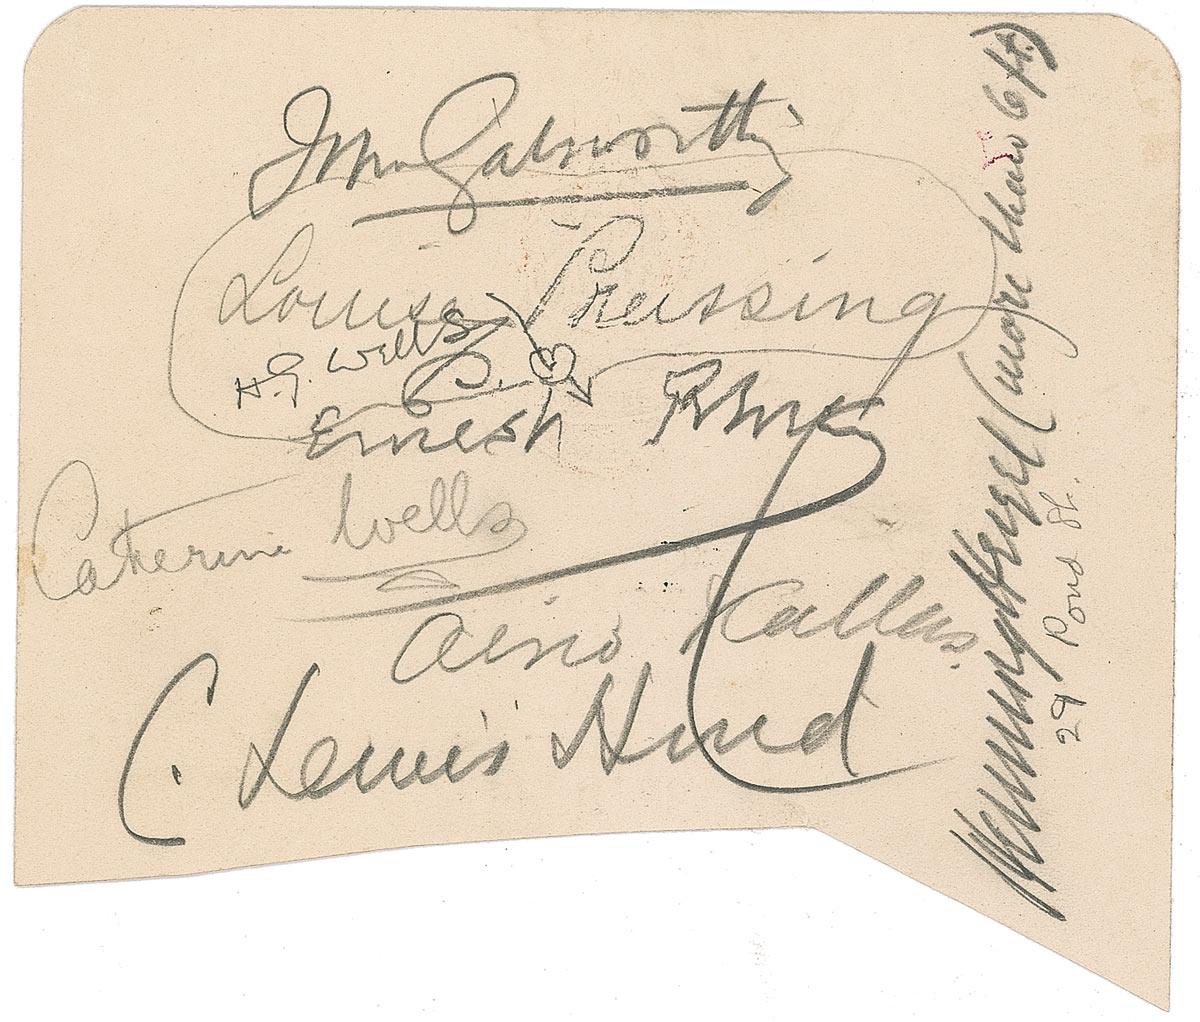 John Galsworthy
Louise Preussing
H.G. Wells
B.
Ernest Rhys
Catherine Wells
Aino Kallas.
C. Lewis Hind
(more than 6 ft.)
29 Pond St.